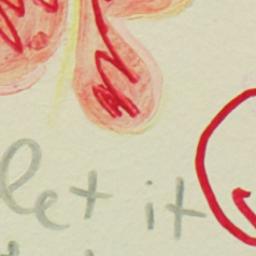 let it